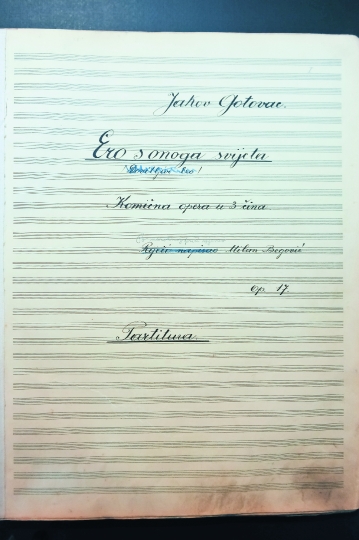 Jakov Gotovac.
Ero s onoga svijeta
Komična opera u 3 čina
Riječi napisao Milan Begović
op. 17.
Partitura.